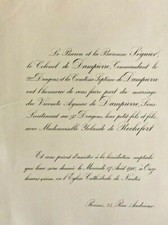 Le Baron et la Baronne Séguier,
le Colonel de Dampierre, Commandant le
Dragons et la Comtesse Septime de Dampierre
ont l'honneur de vous faire part du mariage
du Vicomte Aymar de Dampierre, Sous-
Lieutenant au Dragons, leur petit-fils et fils,
avec Mademoiselle Yolande de Rochefort
Et vous prient d'assister à la bénédiction nuptiale
qui leur sera donnée le Mercredi 17 Août 1910, à Onze
heures en l'Église Cathédrale de Nantes
Rennes, 25, Rue